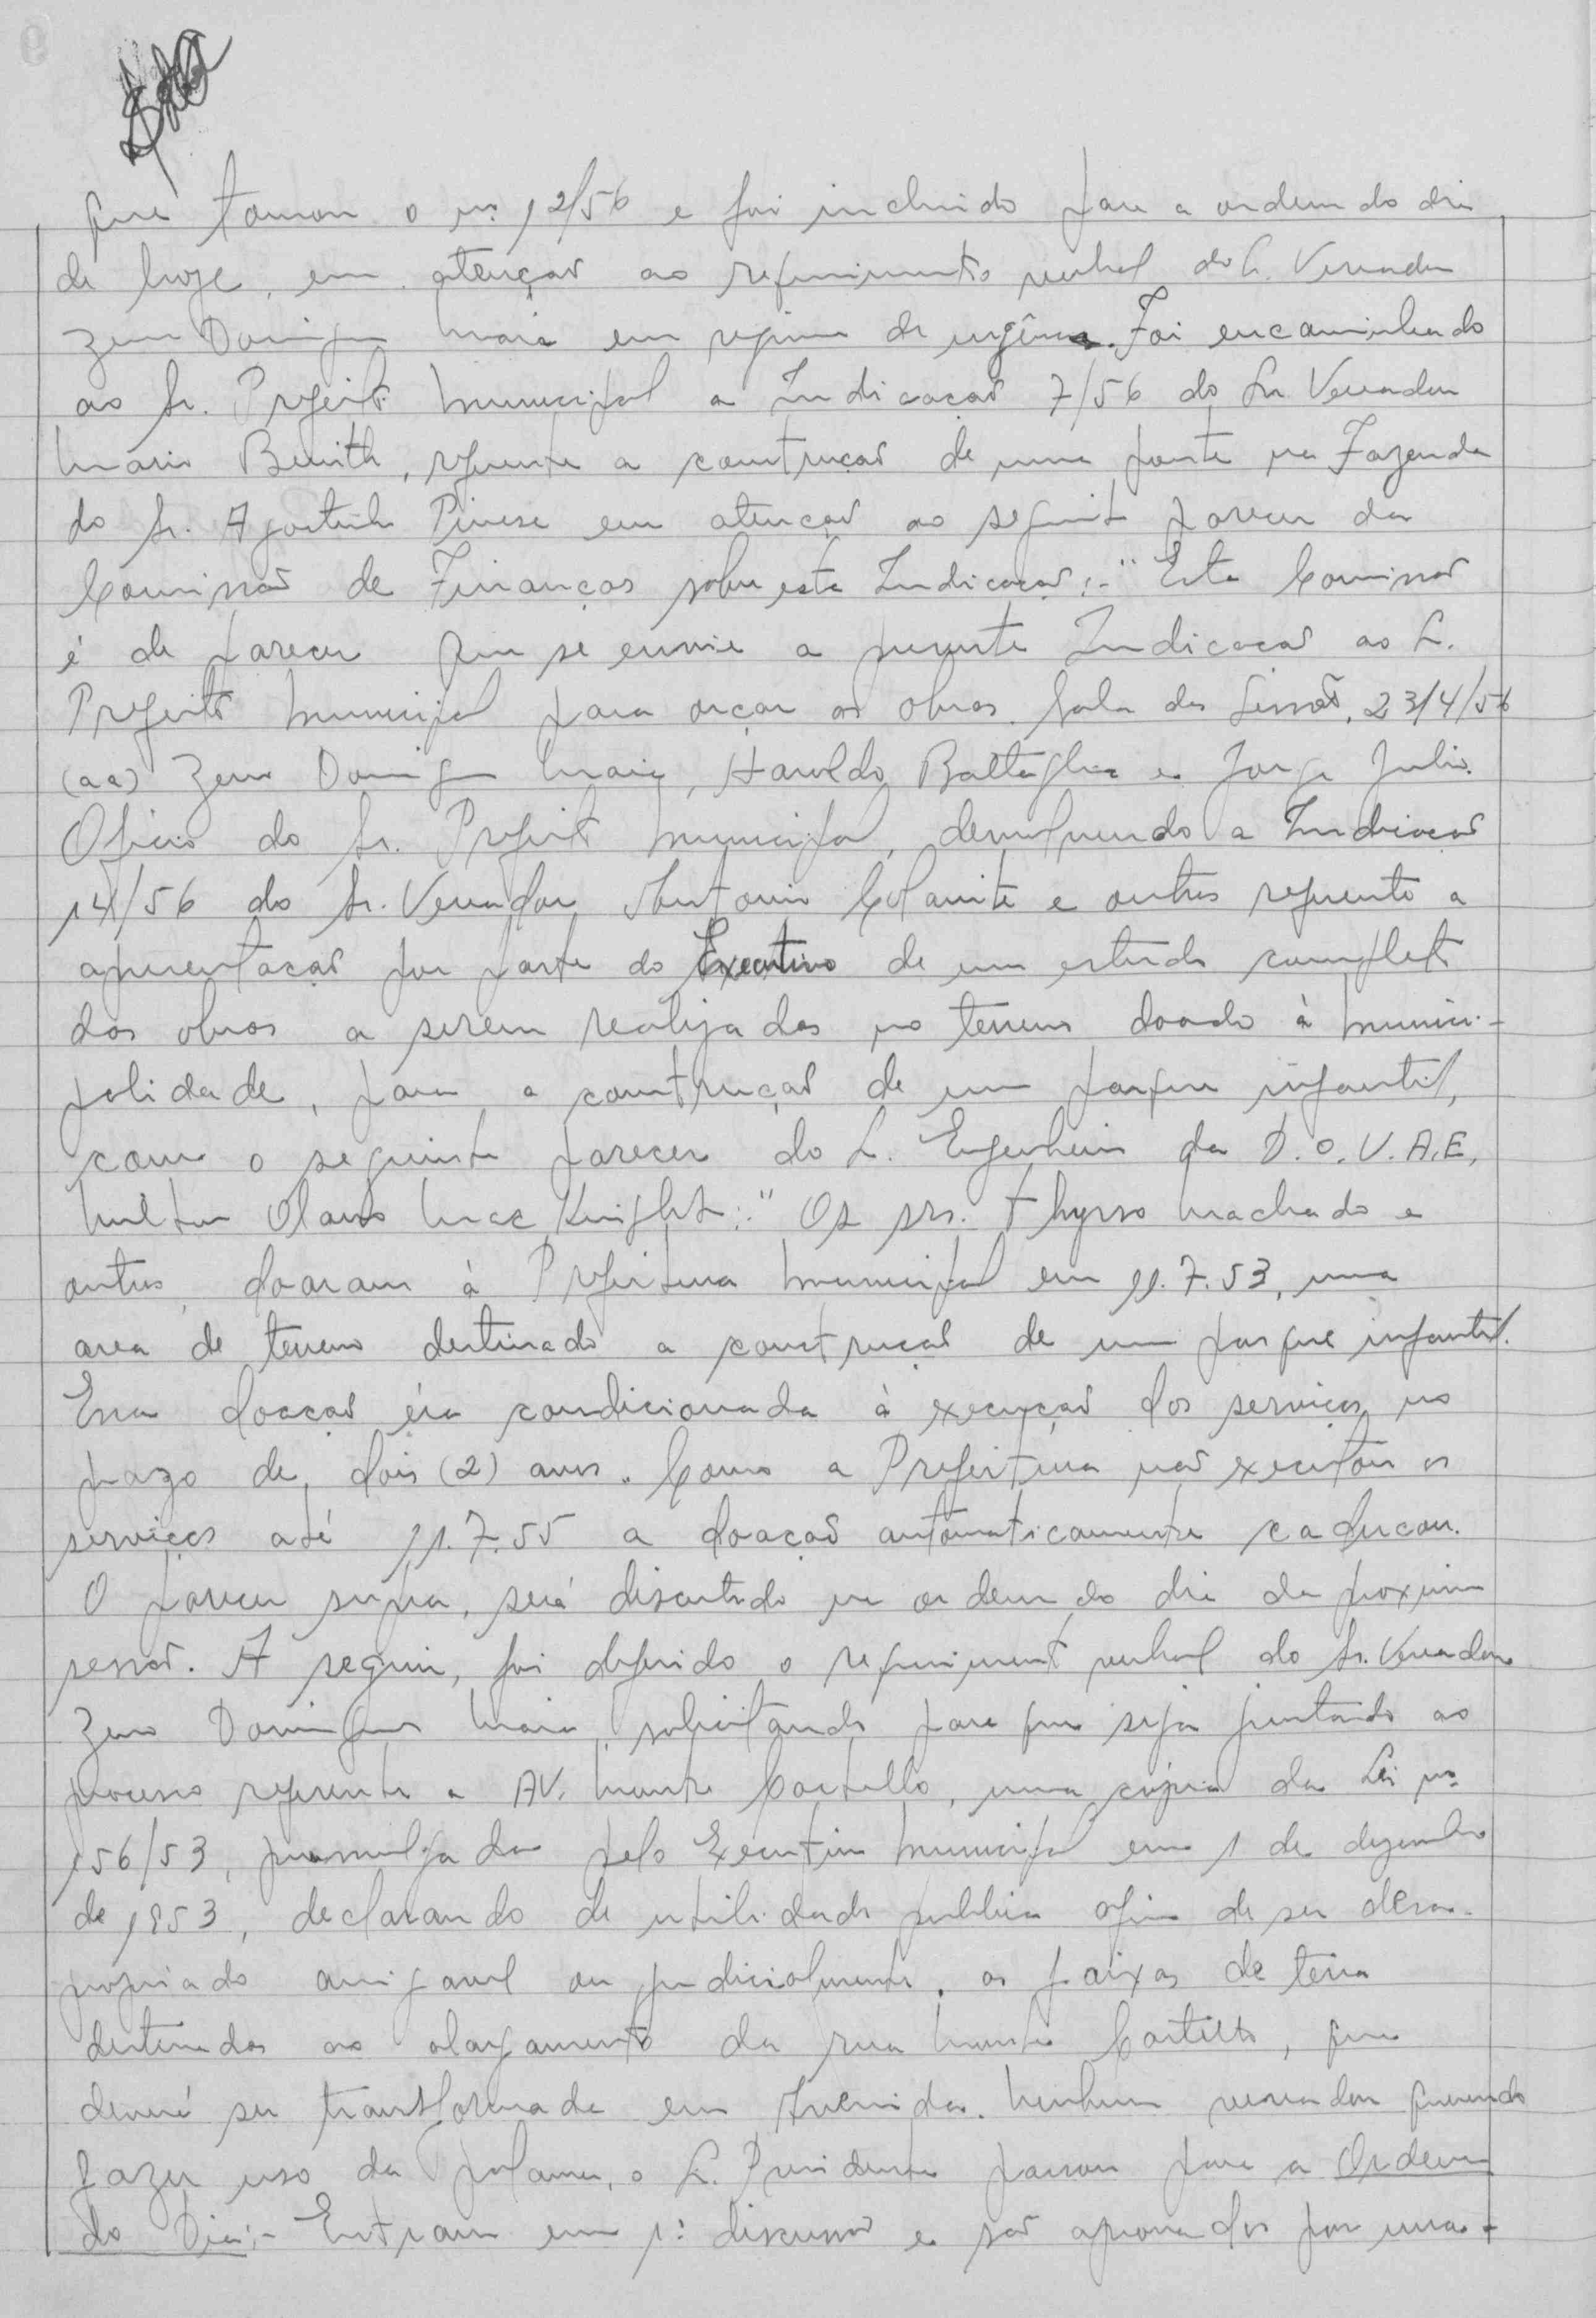 que tomou o nº 12/56 e foi incluido para a ordem do dia
de hoje, em atenção ao requerimento verbal do Sr. Vereador
Zeno Domingues Maia em regime de urgência. Foi encaminhado
ao Sr. Prefeito Municipal a Indicação 7/56 do Sr. Vereador
Mario, referente a construção de uma ponte na Fazenda
do Sr. Agostinho em atenção ao seguinte parecer da
Comissão de Finanças sobre esta Indicação:- "Esta Comissão
é de parecer que se envie a presente Indicação ao Sr.
Prefeito Municipal para orçar as obras. Sala das Sessões, 23/4/56
(aa) Zeno Domingues Maia, Haroldo Battaglia e Jorge Julio.
Oficio do Sr. Prefeito Municipal, devolvendo a Indicação
14/56 do Sr. Vereador Antonio e outros referente a
apresentação por parte do Executivo de um estudo completo
das obras a serem realizadas no terreno doado à Munici-
palidade, para a construção de um parque infantil,
com o seguinte parecer do Sr. Engenheiro da D.O.V.A.E,
Milton Olavo Mac Knight:- "Os srs. Thyrso Machado e
outros, doaram à Prefeitura Municipal em 11.7.53, uma
area de terreno destinado a construção de um parque infantil.
Essa doação éra condicionada à execução dos serviços no
prazo de dois (2) anos. Como a Prefeitura não executou os
serviços até 11.7.55 a doação automaticamente caducou.
O parecer supra, será discutido na ordem do dia da proxima
sessão. A seguir, foi deferido o requerimento verbal do Sr. Vereador
Zeno Domingues Maia, solicitando para que seja juntado ao
processo referente a AV. Monte Castello, uma cópia da Lei nº
156/53, promulgada pelo Executivo Municipal em 1 de dezembro
de 1953, declarando de utilidade publica afim de ser desa-
propriado amigavel ou judicialmente, as faixas de terra
destinadas ao alargamento da rua Monte Castello, que
deverá ser transformada em Avenida. Nenhum vereador querendo
fazer uso da palavra, o Sr. Presidente passou para a Ordem
do Dia:- Entram em 1ª discussão e são aprovados por una-